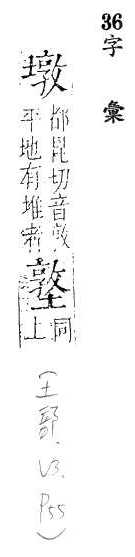 36
字彙
墩
都昆切音敦
平地有堆者
墪
同
上
(土部.V3.P55)